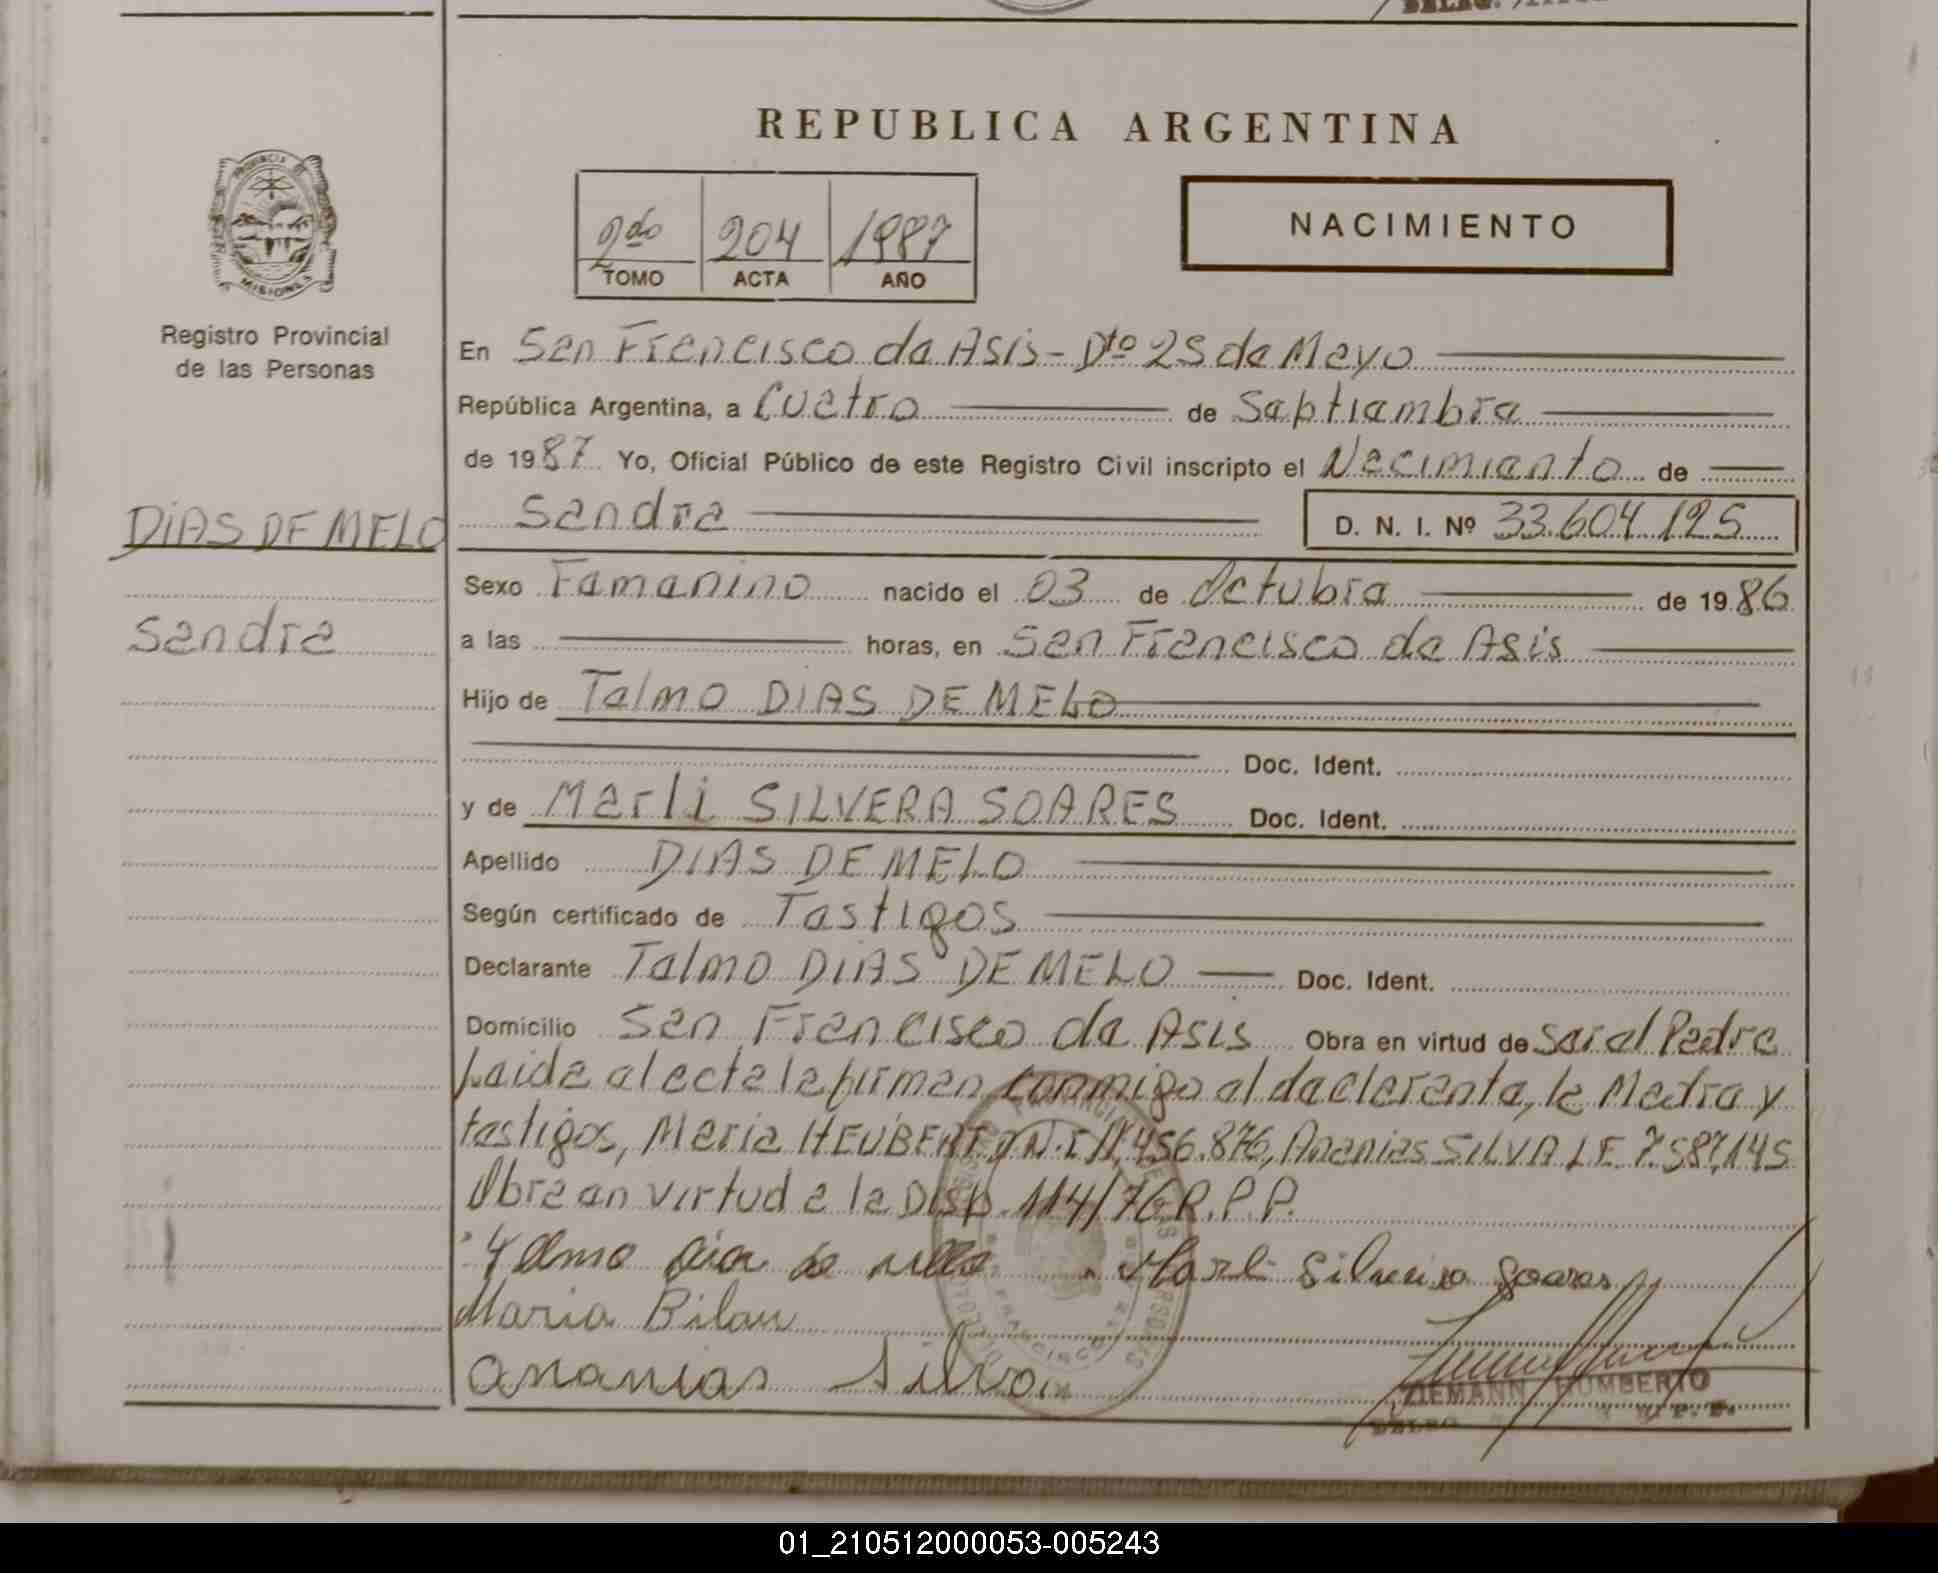 REPUBLICA ARGENTINA
PROVINCIA
MISIONES
Registro Provincial
de las Personas
2do 204 1987
TOMO ACTA AÑO
NACIMIENTO
En San Francisco de Asis - Dto 25 de Mayo
República Argentina, a Cuatro de Septiembre
de 1987 Yo, Oficial Público de este Registro Civil inscripto el Nacimiento de
DIAS DE MELO
Sandra D. N. I. Nº 33.604.125
Sexo Femenino nacido el 03 de Octubre de 1986
Sandra
a las horas, en San Francisco de Asis
Hijo de Telmo DIAS DE MELO
Doc. Ident.
y de Marli SILVERA SOARES Doc. Ident.
Apellido DIAS DE MELO
Según certificado de Testigos
Declarante Telmo DIAS DE MELO Doc. Ident.
Domicilio San Francisco de Asis Obra en virtud de ser el Padre
Leida el acta la firman conmigo el declarante, la Madre y
testigos, Maria HEUBERT D.N.I 11.456.876, Ananias SILVA L.E 7.587.145
Obra en virtud a la Disp. 114/76 R.P.P.
Telmo dias de mello Marli Silveira Soares
Maria Bilau
Ananias Silva
ZIEMANN HUMBERTO
01_210512000053-005243